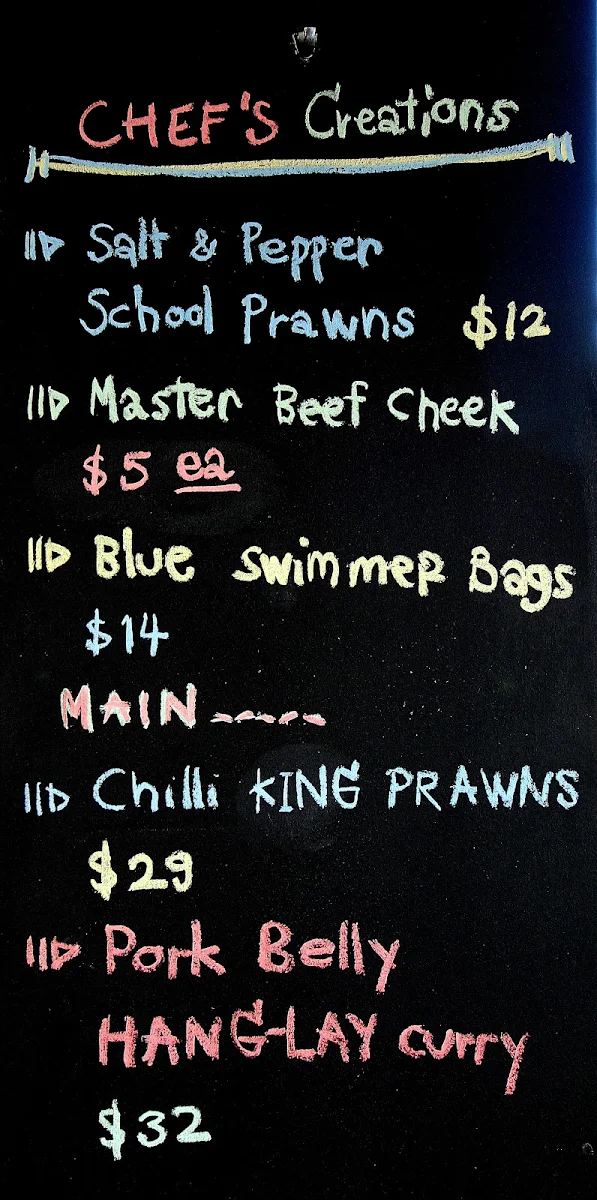 CHEF'S Creations
Salt & Pepper
School Prawns $12
Master Beef Cheek
$5 ea
Blue swimmer Bags
$14
MAIN -----
Chilli KING PRAWNS
$29
Pork Belly
HANG-LAY curry
$32